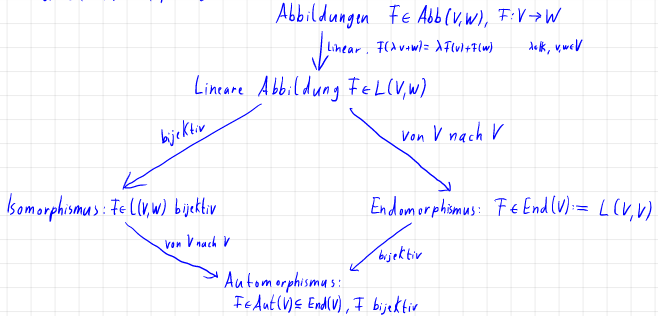 Abbildungen F ∈ Abb(V,W), F: V → W
linear. F(λv+w) = λF(v)+F(w) λ∈K, v,w∈V
Lineare Abbildung F ∈ L(V,W)
bijektiv
von V nach V
Isomorphismus: F∈L(V,W) bijektiv
Endomorphismus: F ∈ End(V) := L(V,V)
von V nach V
bijektiv
Automorphismus:
F∈Aut(V)⊆End(V), F bijektiv